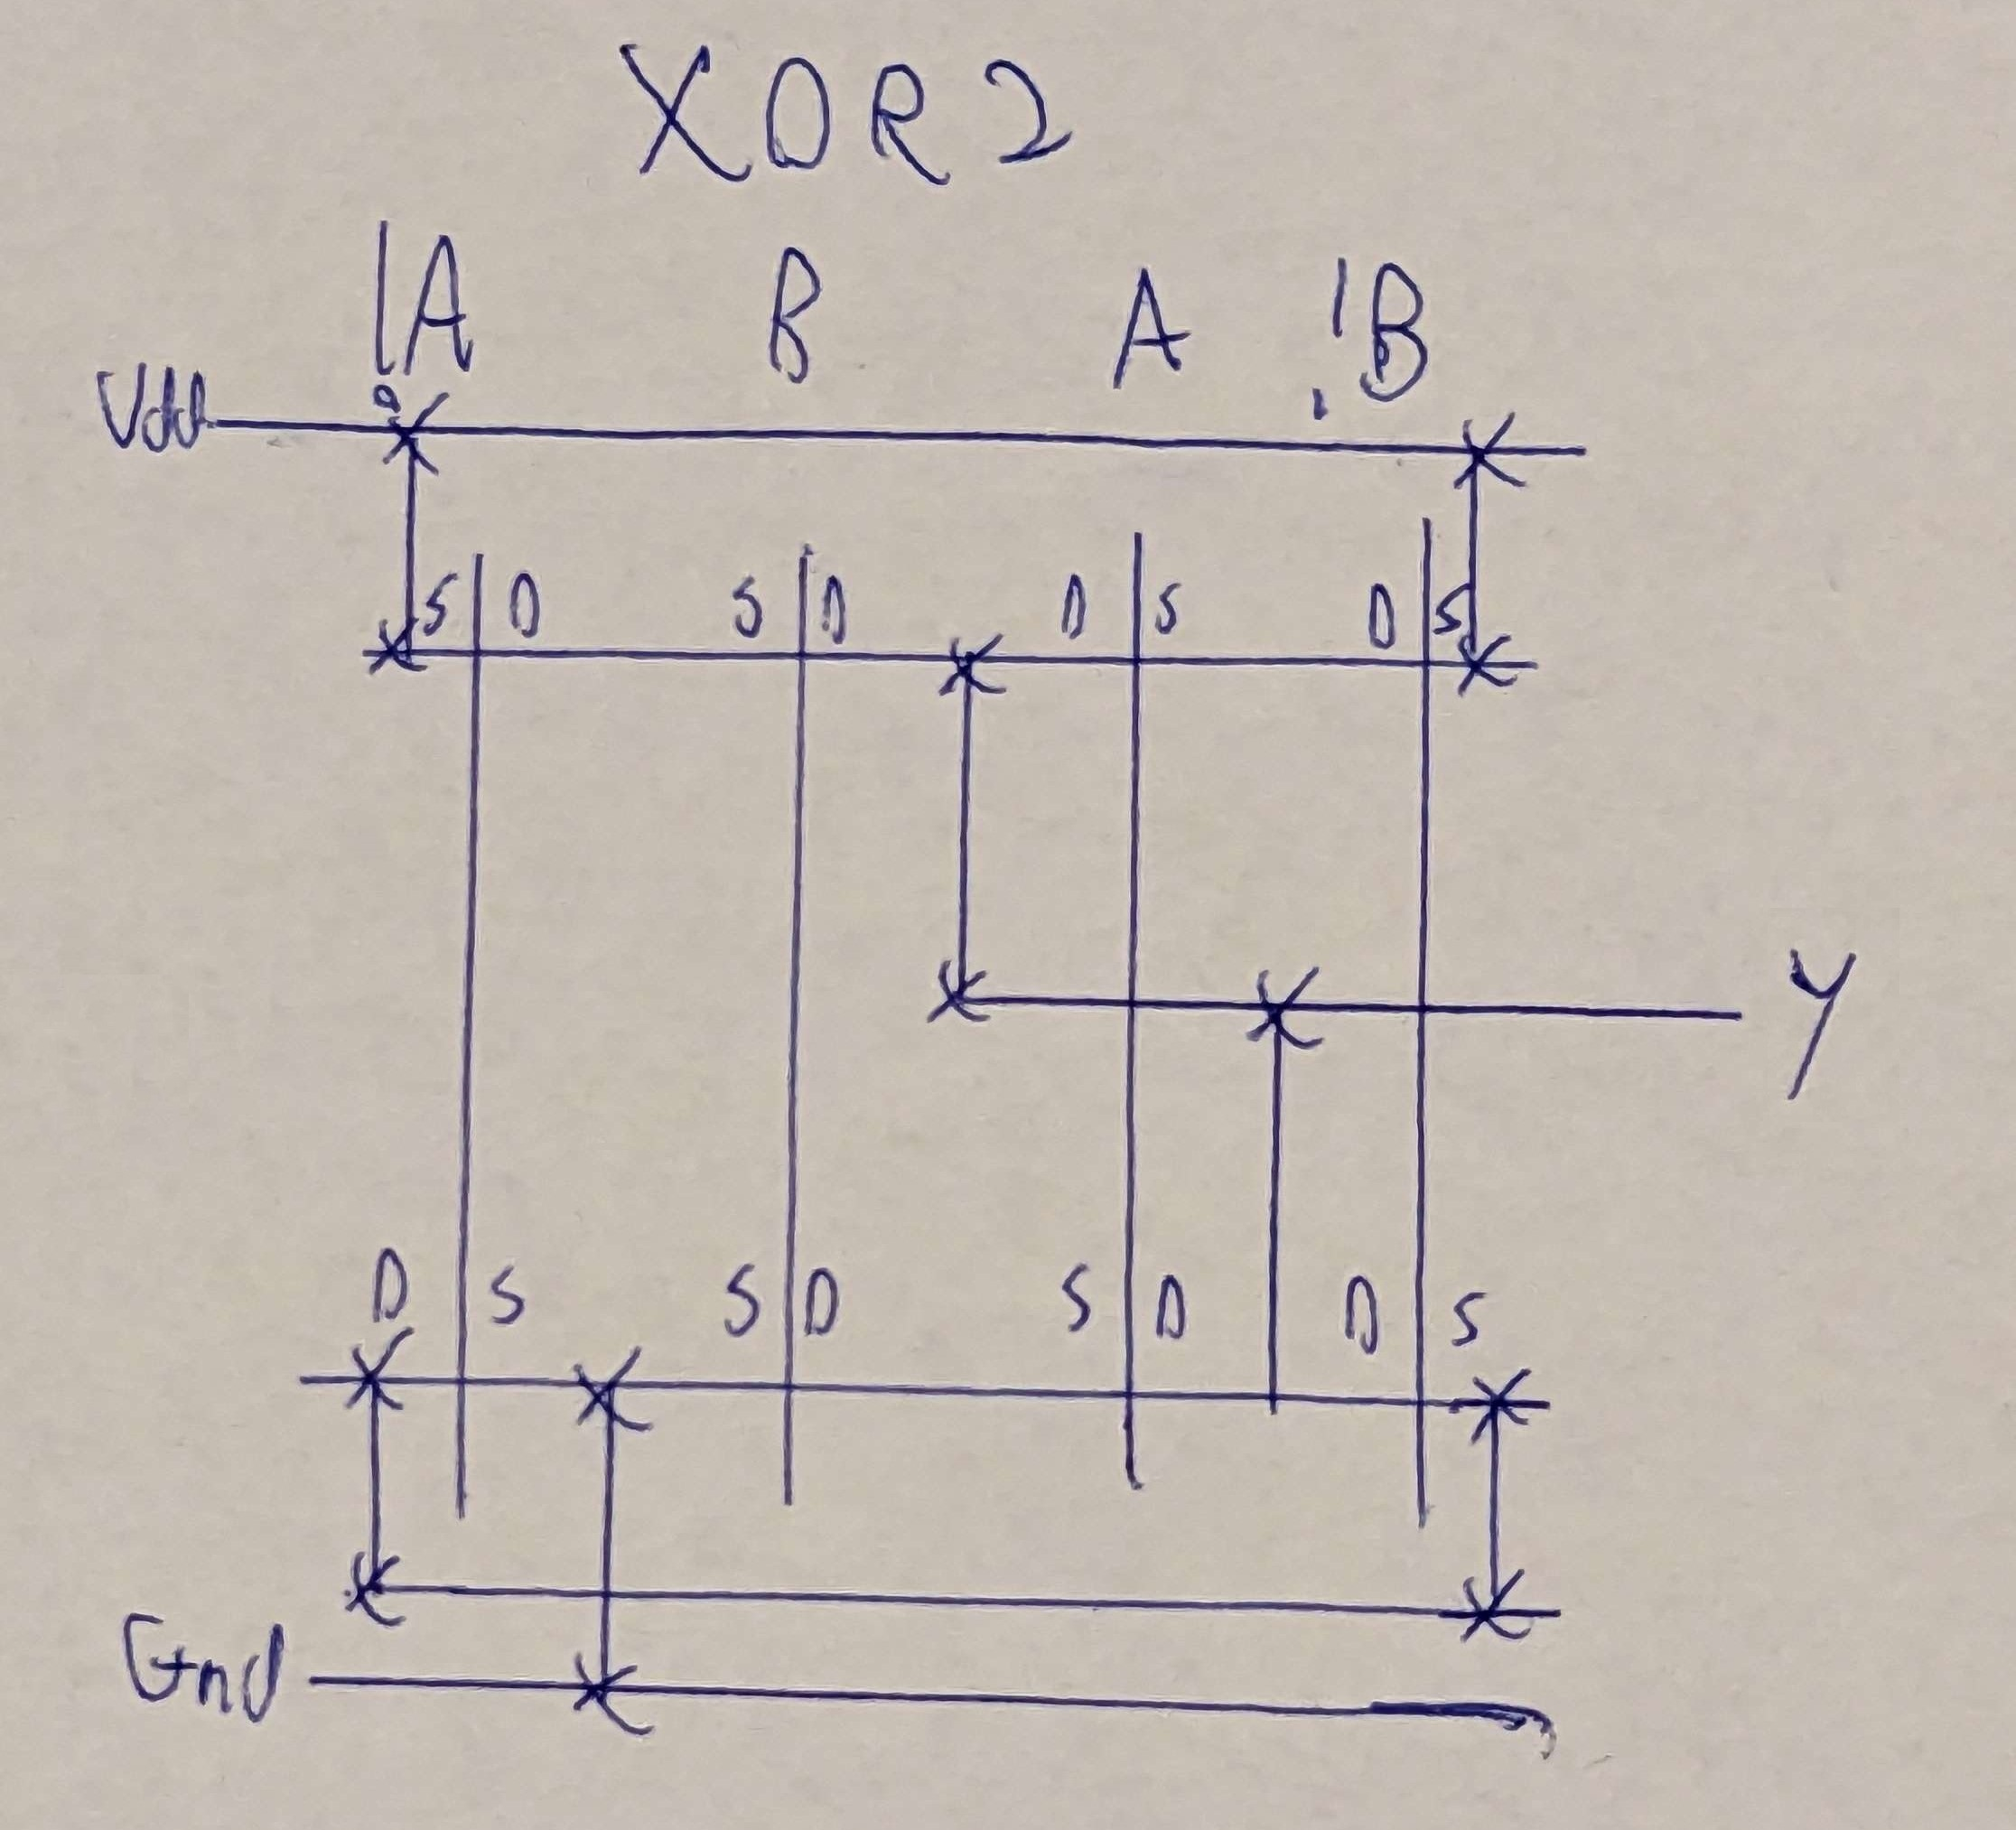 XOR2
!A B A !B
Vdd
S D S D D S D S
Y
D S S D S D D S
Gnd